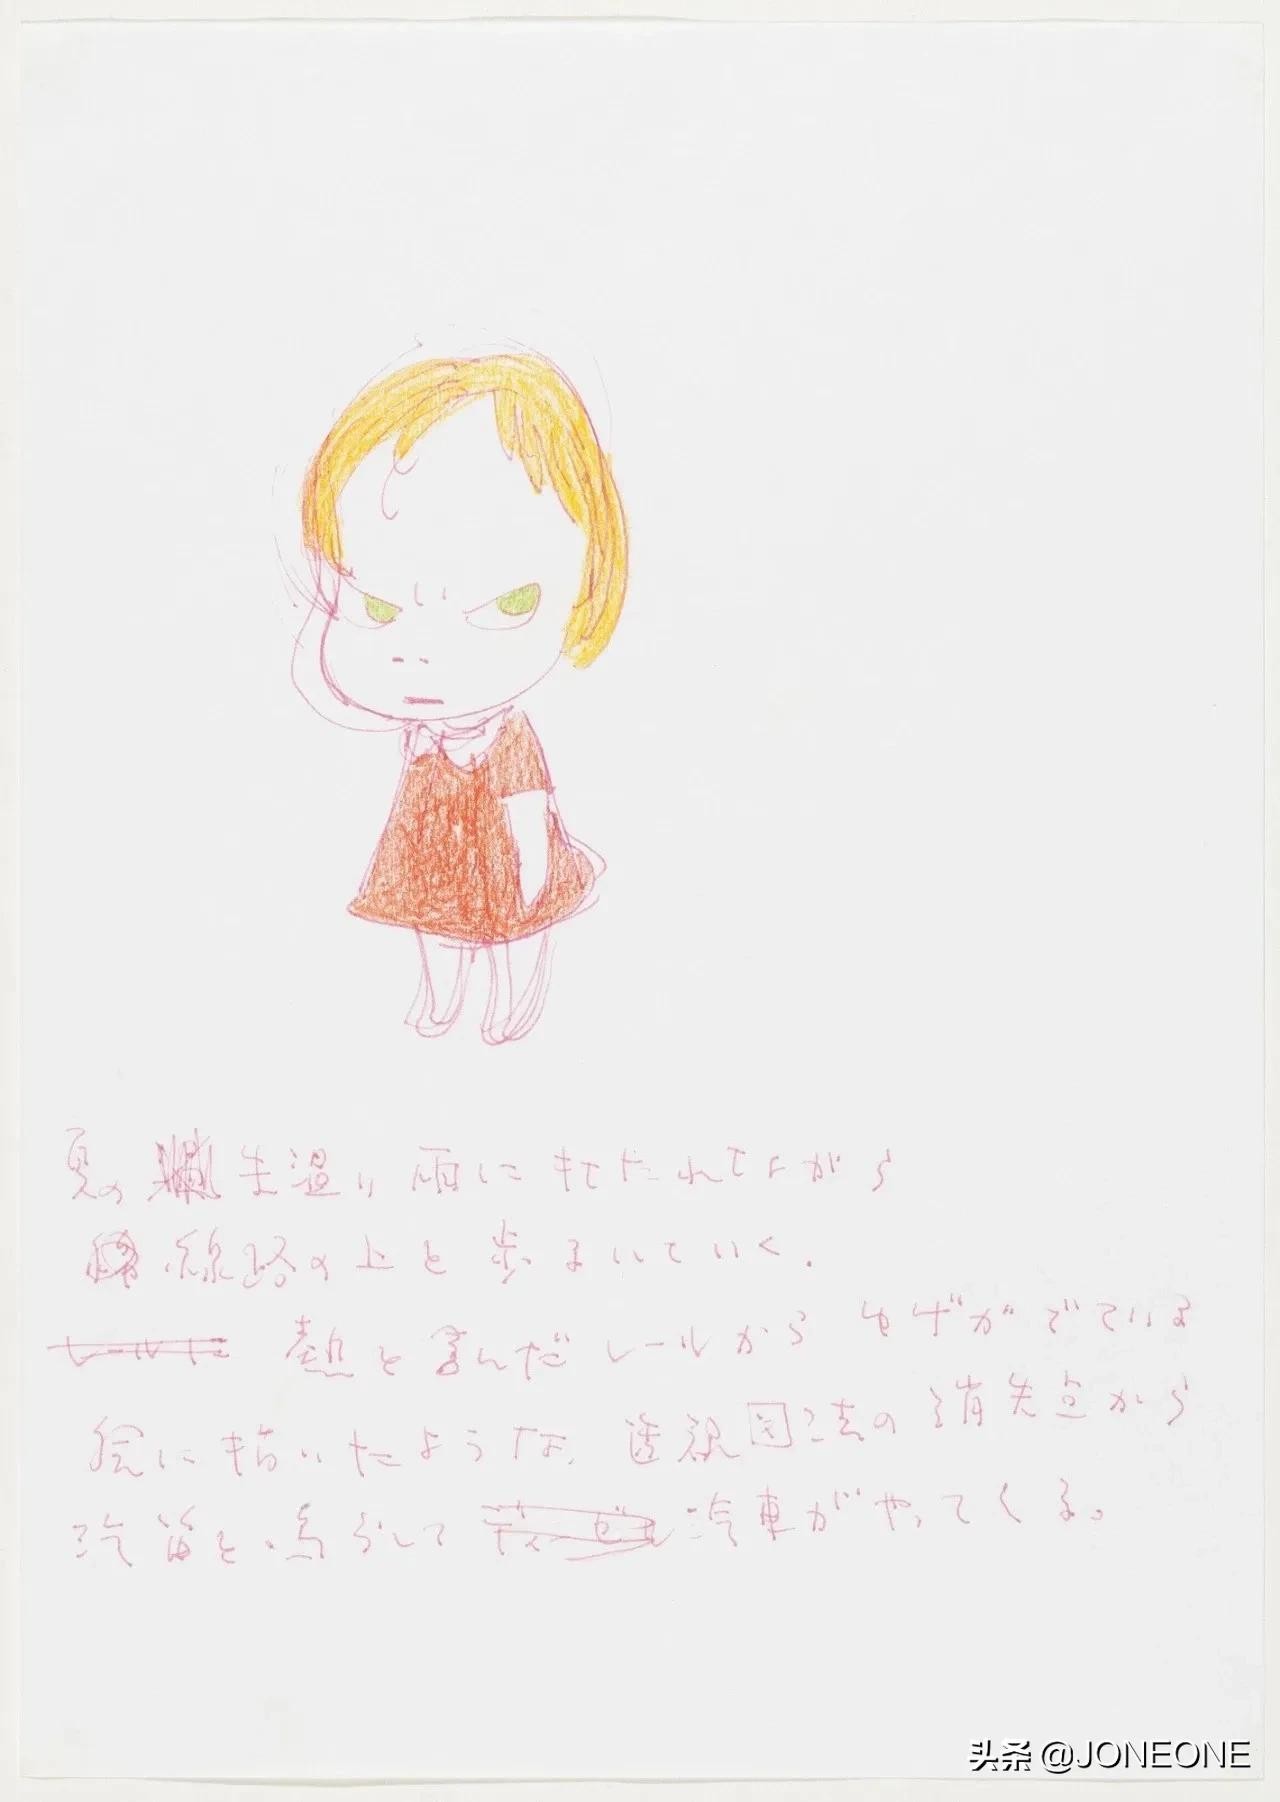 夏の 生温い 雨に うたれてながら
線路の上を 歩るいていく.
レールに 熱を 含んだ レールから ゆげがでている
絵に描いたような、透視図法の消失点から
汽笛を鳴らして ディーゼル 汽車がやってくる。
头条 @JONEONE